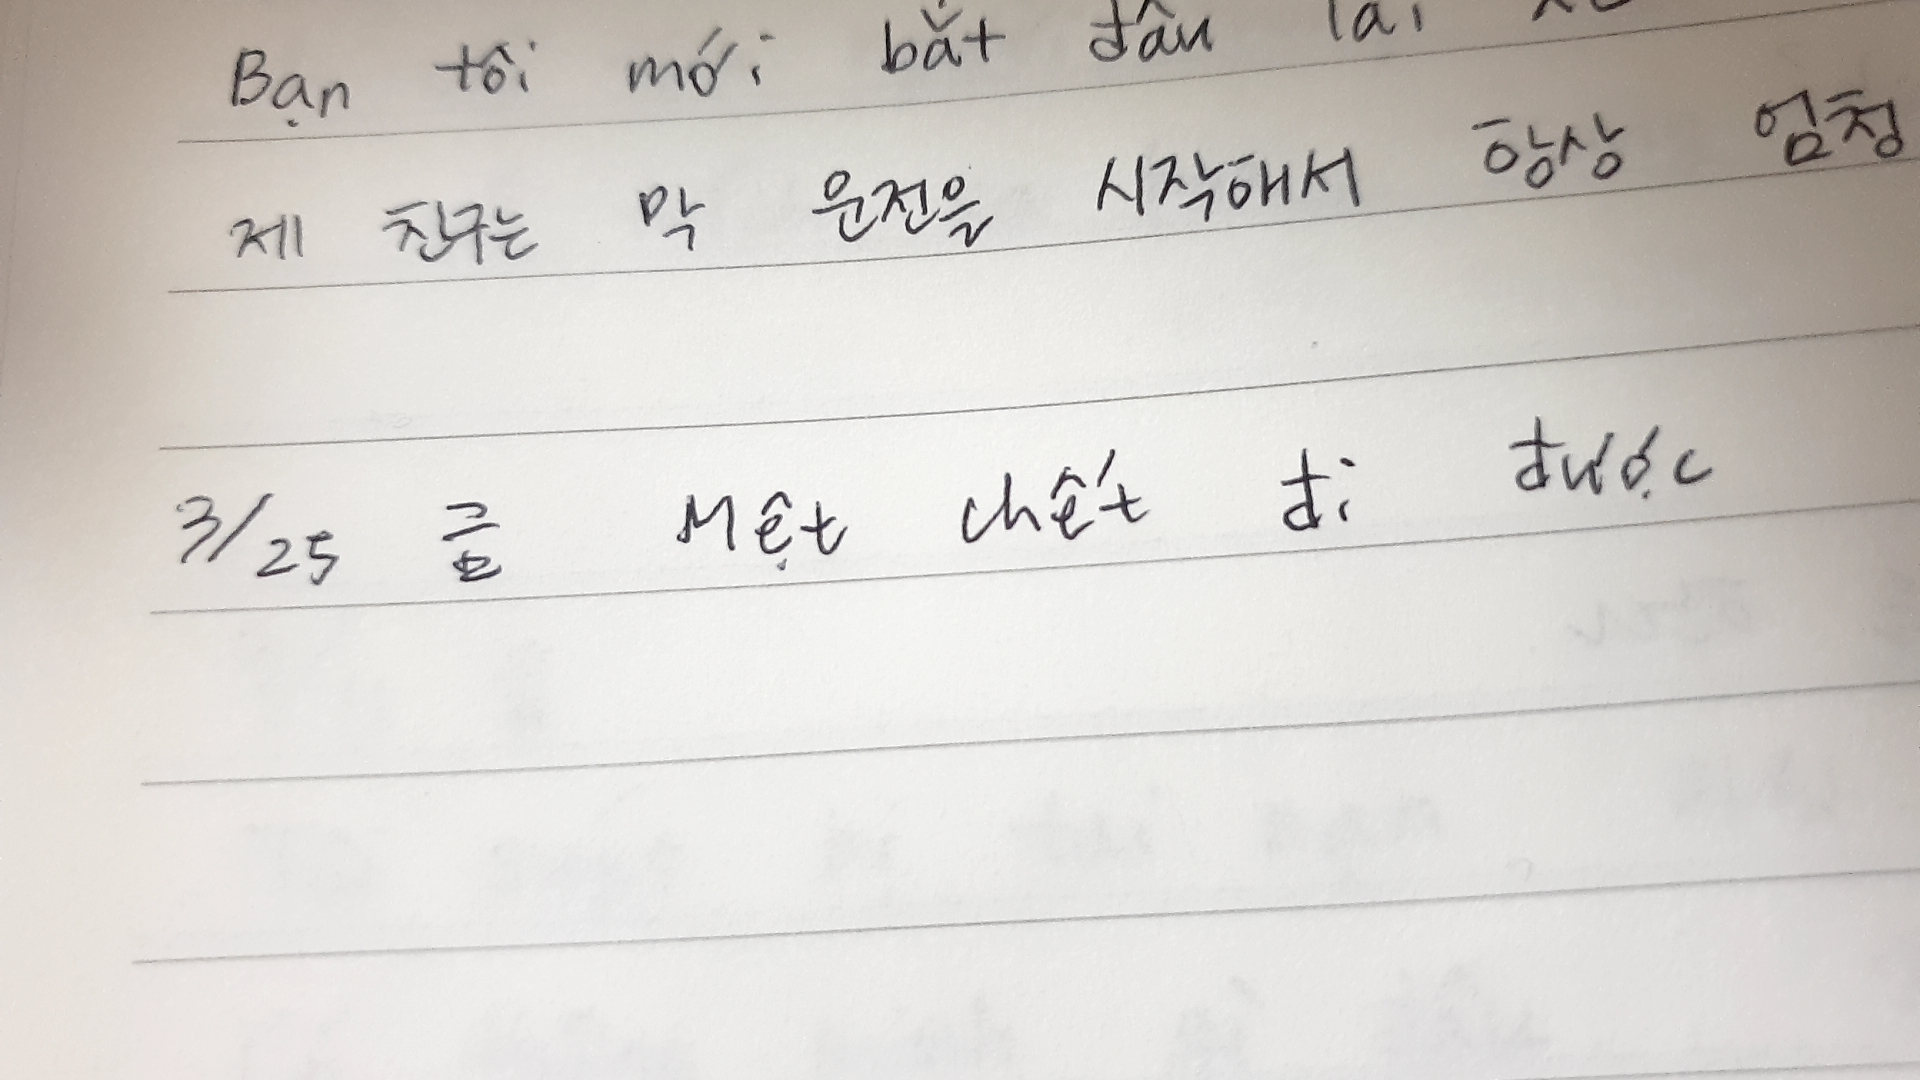 Bạn tôi mới bắt đầu lái
제 친구는 막 운전을 시작해서 항상 엄청
3/25 금 Mệt chết đi được